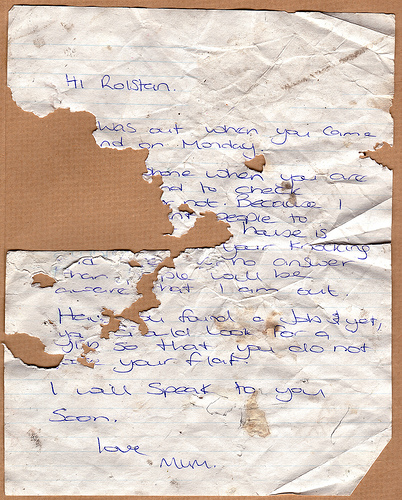 Hi Rolstan.
was out when you came
nd on Monday.
phone when you are
nd to check
not. Because I
nt people to
house is
your knocking
who answer
than ple will be
aware that I am out.
Have you found a Job yet,
you should look for a
Job so that you do not
your flat.
I will Speak to you
Soon.
love
Mum.